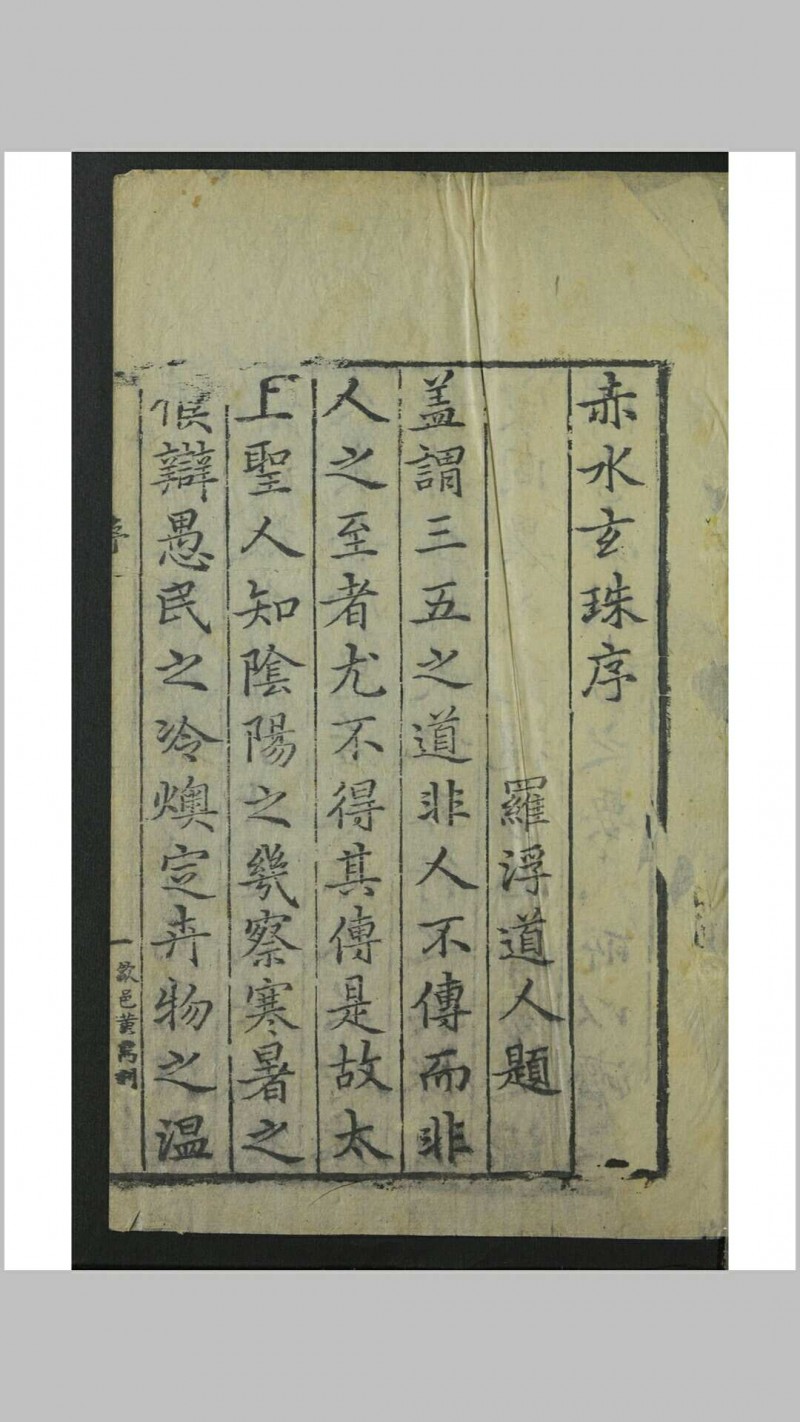 赤水玄珠序
羅浮道人題
蓋謂三五之道非人不傳而非
人之至者尤不得其傳是故太
上聖人知陰陽之幾察寒暑之
候辯愚民之冷燠定卉物之温
序
一
歙邑黄鼎刊